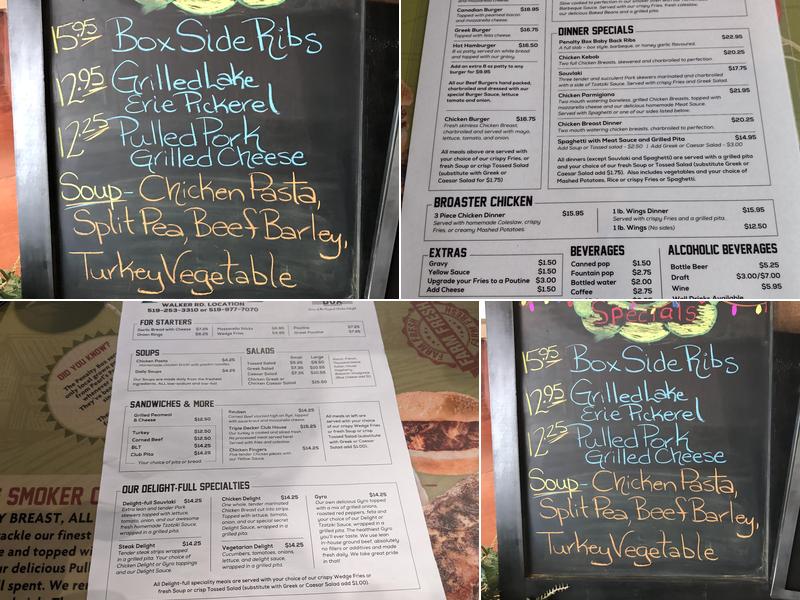 15.95 Box Side Ribs
12.95 Grilled Lake
Erie Pickerel
12.25 Pulled Pork
Grilled Cheese
Soup - Chicken Pasta,
Split Pea, Beef Barley,
Turkey Vegetable
Canadian Burger $18.95
Topped with peameal bacon
and mozzarella cheese.
Greek Burger $16.75
Topped with feta cheese.
Hot Hamburger $16.50
8 oz patty served on white bread
and topped with our gravy.
Add an extra 8 oz patty to any
burger for $9.95
All our Beef Burgers hand packed,
charbroiled and dressed with our
special Burger Sauce, lettuce
tomato and onion.
Chicken Burger $16.75
Fresh skinless Chicken Breast,
charbroiled and served with mayo,
lettuce, tomato, and onion.
All meals above are served with
your choice of our crispy Fries, or
fresh soup or crisp Tossed Salad
(substitute with Greek or
Caesar Salad for $1.75)
DINNER SPECIALS
Penalty Box Baby Back Ribs $22.95
A full slab - box style, barbeque, or honey garlic flavoured.
Chicken Kebob $20.25
Two full Chicken Breasts, skewered and charbroiled to perfection.
Souvlaki $17.75
Three tender and succulent Pork skewers marinated and charbroiled
with a side of Tzatziki Sauce. Served with crispy Fries and Greek Salad.
Chicken Parmigiana $21.95
Two mouth watering boneless, grilled Chicken Breasts, topped with
mozzarella cheese and our delicious homemade Meat Sauce.
Served with Spaghetti or one of our sides listed below.
Chicken Breast Dinner $20.25
Two mouth watering chicken breasts, charbroiled to perfection.
Spaghetti with Meat Sauce and Grilled Pita $14.95
Add Soup or Tossed salad - $2.50 | Add Greek or Caesar Salad - $3.00
All dinners (except Souvlaki and Spaghetti) are served with a grilled pita
and your choice of our fresh Soup or crisp Tossed Salad (substitute Greek or
Caesar Salad add $1.75). Also includes vegetables and your choice of
Mashed Potatoes, Rice or crispy Fries or Spaghetti.
BROASTER CHICKEN
3 Piece Chicken Dinner $15.95
Served with homemade Coleslaw, crispy
Fries, or creamy Mashed Potatoes.
1 lb. Wings Dinner $15.95
Served with crispy Fries and a grilled pita.
1 lb. Wings (No sides) $12.50
EXTRAS
Gravy $1.50
Yellow Sauce $1.50
Upgrade your Fries to a Poutine $3.00
Add Cheese $1.50
BEVERAGES
Canned pop $1.50
Fountain pop $2.75
Bottled water $2.00
Coffee $2.75
ALCOHOLIC BEVERAGES
Bottle Beer $5.25
Draft $3.00/$7.00
Wine $5.95
Well Drinks Available
WALKER RD. LOCATION
519-253-3310 or 519-977-7070
FOR STARTERS
Garlic Bread with Cheese $7.25
Onion Rings
Mozzarella Sticks
Wedge Fries
Poutine $7.25
Greek Poutine
SOUPS
Chicken Pasta $4.25
Homemade chicken broth with pastini noodles.
Daily Soups $4.25
Our Soups are made daily from the freshest
ingredients. ALL low sodium and low-fat!
SALADS
Small Large
Tossed Salad
Greek Salad
Caesar Salad
Chicken Greek or
Chicken Caesar Salad
SANDWICHES & MORE
Grilled Peameal
& Cheese $12.50
Turkey $12.50
Corned Beef $12.50
BLT $14.25
Club Pita $14.25
Your choice of pita or bread.
Reuben $14.25
Corned Beef stacked high on Rye, topped
with sauerkraut and mozzarella cheese.
Triple Decker Club House $15.25
Our turkey is cooked and sliced fresh.
No processed meat served here!
Served with fries and coleslaw.
Chicken Fingers $14.25
Five tender Chicken pieces with
our Yellow Sauce.
All meals at left are
served with your choice
of our crispy Wedge Fries
or fresh Soup or crisp
Tossed Salad (substitute
with Greek or Caesar
Salad add $1.00).
OUR DELIGHT-FULL SPECIALTIES
Delight-full Souvlaki $14.25
Extra lean and tender Pork
skewers topped with lettuce,
tomato, onion, and our awesome
fresh homemade Tzatziki Sauce,
wrapped in a grilled pita.
Steak Delight $14.25
Tender steak strips wrapped
in a grilled pita. Your choice of
Chicken Delight or Gyro toppings
and our Delight Sauce.
Chicken Delight $14.25
One whole, tender marinated
Chicken Breast cut into strips.
Topped with lettuce, tomato,
onion, and our special secret
Delight Sauce, wrapped in a
grilled pita.
Vegetarian Delight $14.25
Cucumbers, tomatoes, onions,
lettuce, and delight sauce,
wrapped in a grilled pita.
Gyro $14.25
Our own delicious Gyro topped
with a mix of grilled onions,
roasted red peppers, feta and
your choice of our Delight or
Tzatziki Sauce, wrapped in a
grilled pita. The healthiest Gyro
you'll ever taste. We use lean
in-house ground beef, absolutely
no fillers or additives and made
fresh daily. We take great pride
in that!
All Delight-full speciality meals are served with your choice of our crispy Wedge Fries or
fresh Soup or crisp Tossed Salad (substitute with Greek or Caesar Salad add $1.00).
DID YOU KNOW?
SMOKER
Specials
15.95 Box Side Ribs
12.95 Grilled Lake
Erie Pickerel
12.25 Pulled Pork
Grilled Cheese
Soup - Chicken Pasta,
Split Pea, Beef Barley,
Turkey Vegetable